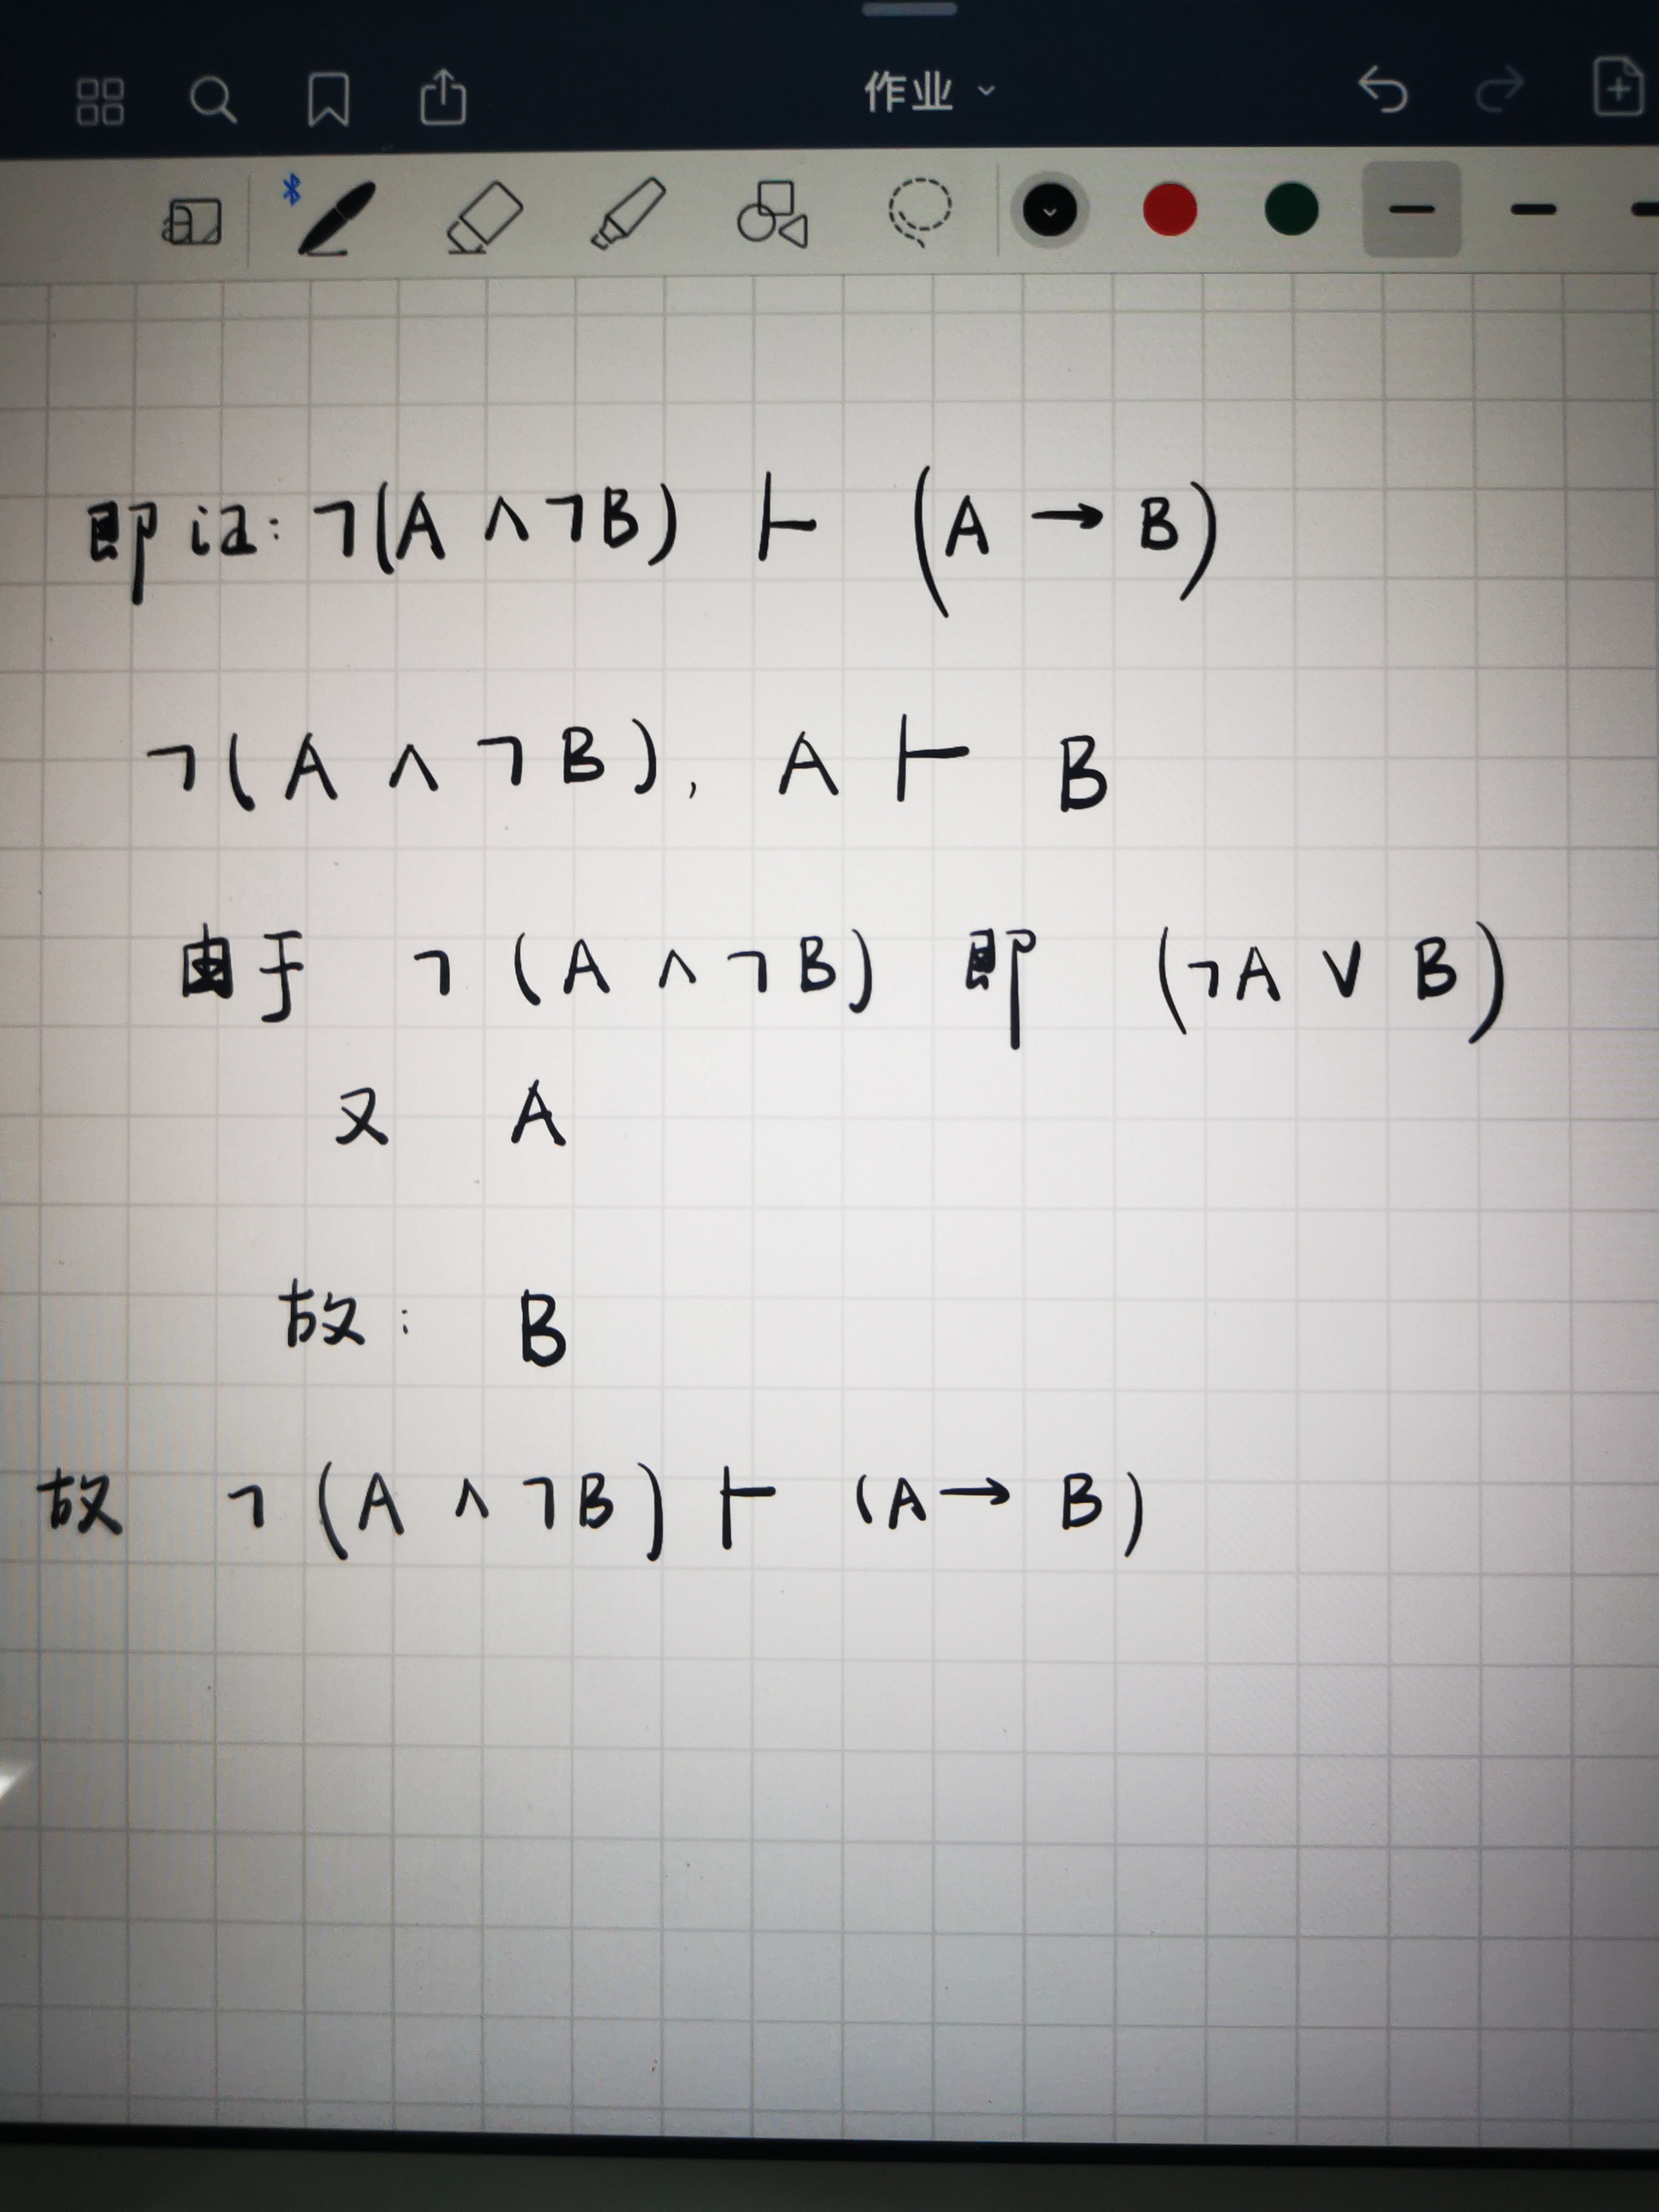 作业
即证: ¬(A ∧ ¬B) ⊢ (A → B)
¬(A ∧ ¬B), A ⊢ B
由于 ¬(A ∧ ¬B) 即 (¬A ∨ B)
又 A
故: B
故 ¬(A ∧ ¬B) ⊢ (A → B)